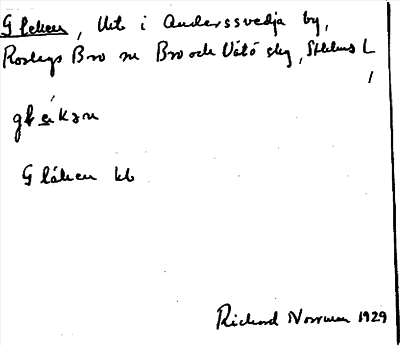 Gläken, Uts i Anderssvedja by,
Roslags Bro sn Bro och Vätö skg, Sthlms L
gläkən
Gläken kb
Richard Norrman 1929